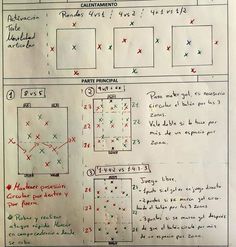 CALENTAMIENTO
Activación
Trote
Movilidad
articular
Rondos 4vs1 / 4vs2 / 4+1 vs 1/2
PARTE PRINCIPAL
① 8 vs 5
② 4v4 +
Para meter gol, es necesario
circular el balón por las 3
zonas.
Vale doble si lo hace por
más de un espacio por
zona.
Z1
Z2
Z3
• Mantener posesión
Circular por dentro y
por fuera.
• Robar y realizar
ataque rápido
en
se roba
③ 1-4-4-2 vs 1-4-1-3
Z3
Z2
Z1
Juego libre.
- 1 punto si el gol es en juego directo
- 2 puntos si se marca gol circulando
balón por las 3 zonas
- 3 puntos si se marca gol después
de que el balón circule por más
de un espacio por zona.